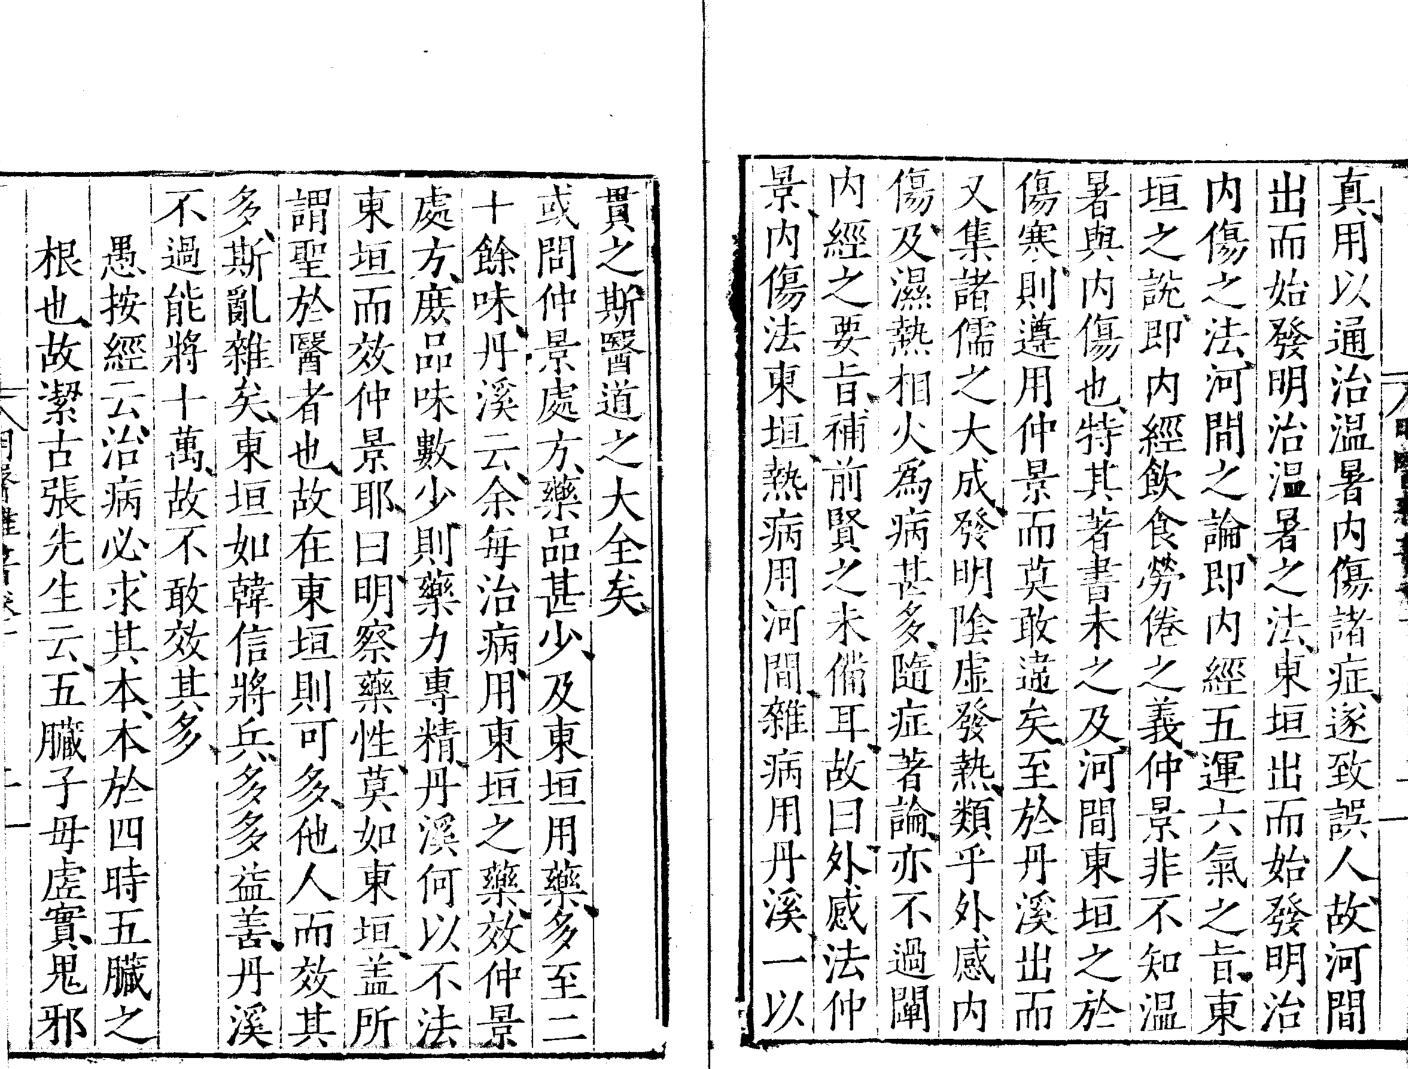 真用以通治温暑内傷諸症遂致誤人故河間
出而始發明治温暑之法東垣出而始發明治
内傷之法河間之論即内經五運六氣之旨東
垣之説即内經飲食勞倦之義仲景非不知温
暑與内傷也特其著書未之及河間東垣之於
傷寒則遵用仲景而莫敢違矣至於丹溪出而
又集諸儒之大成發明陰虛發熱類乎外感内
傷及濕熱相火為病甚多隨症著論亦不過闡
内經之要旨補前賢之未備耳故曰外感法仲
景内傷法東垣熱病用河間雜病用丹溪一以
貫之斯醫道之大全矣
或問仲景處方藥品甚少及東垣用藥多至二
十餘味丹溪云余每治病用東垣之藥效仲景
處方庶品味數少則藥力專精丹溪何以不法
東垣而效仲景耶曰明察藥性莫如東垣盖所
謂聖於醫者也故在東垣則可多他人而效其
多斯亂雜矣東垣如韓信將兵多多益善丹溪
不過能將十萬故不敢效其多
愚按經云治病必求其本本於四時五臟之
根也故潔古張先生云五臟子母虛實鬼邪